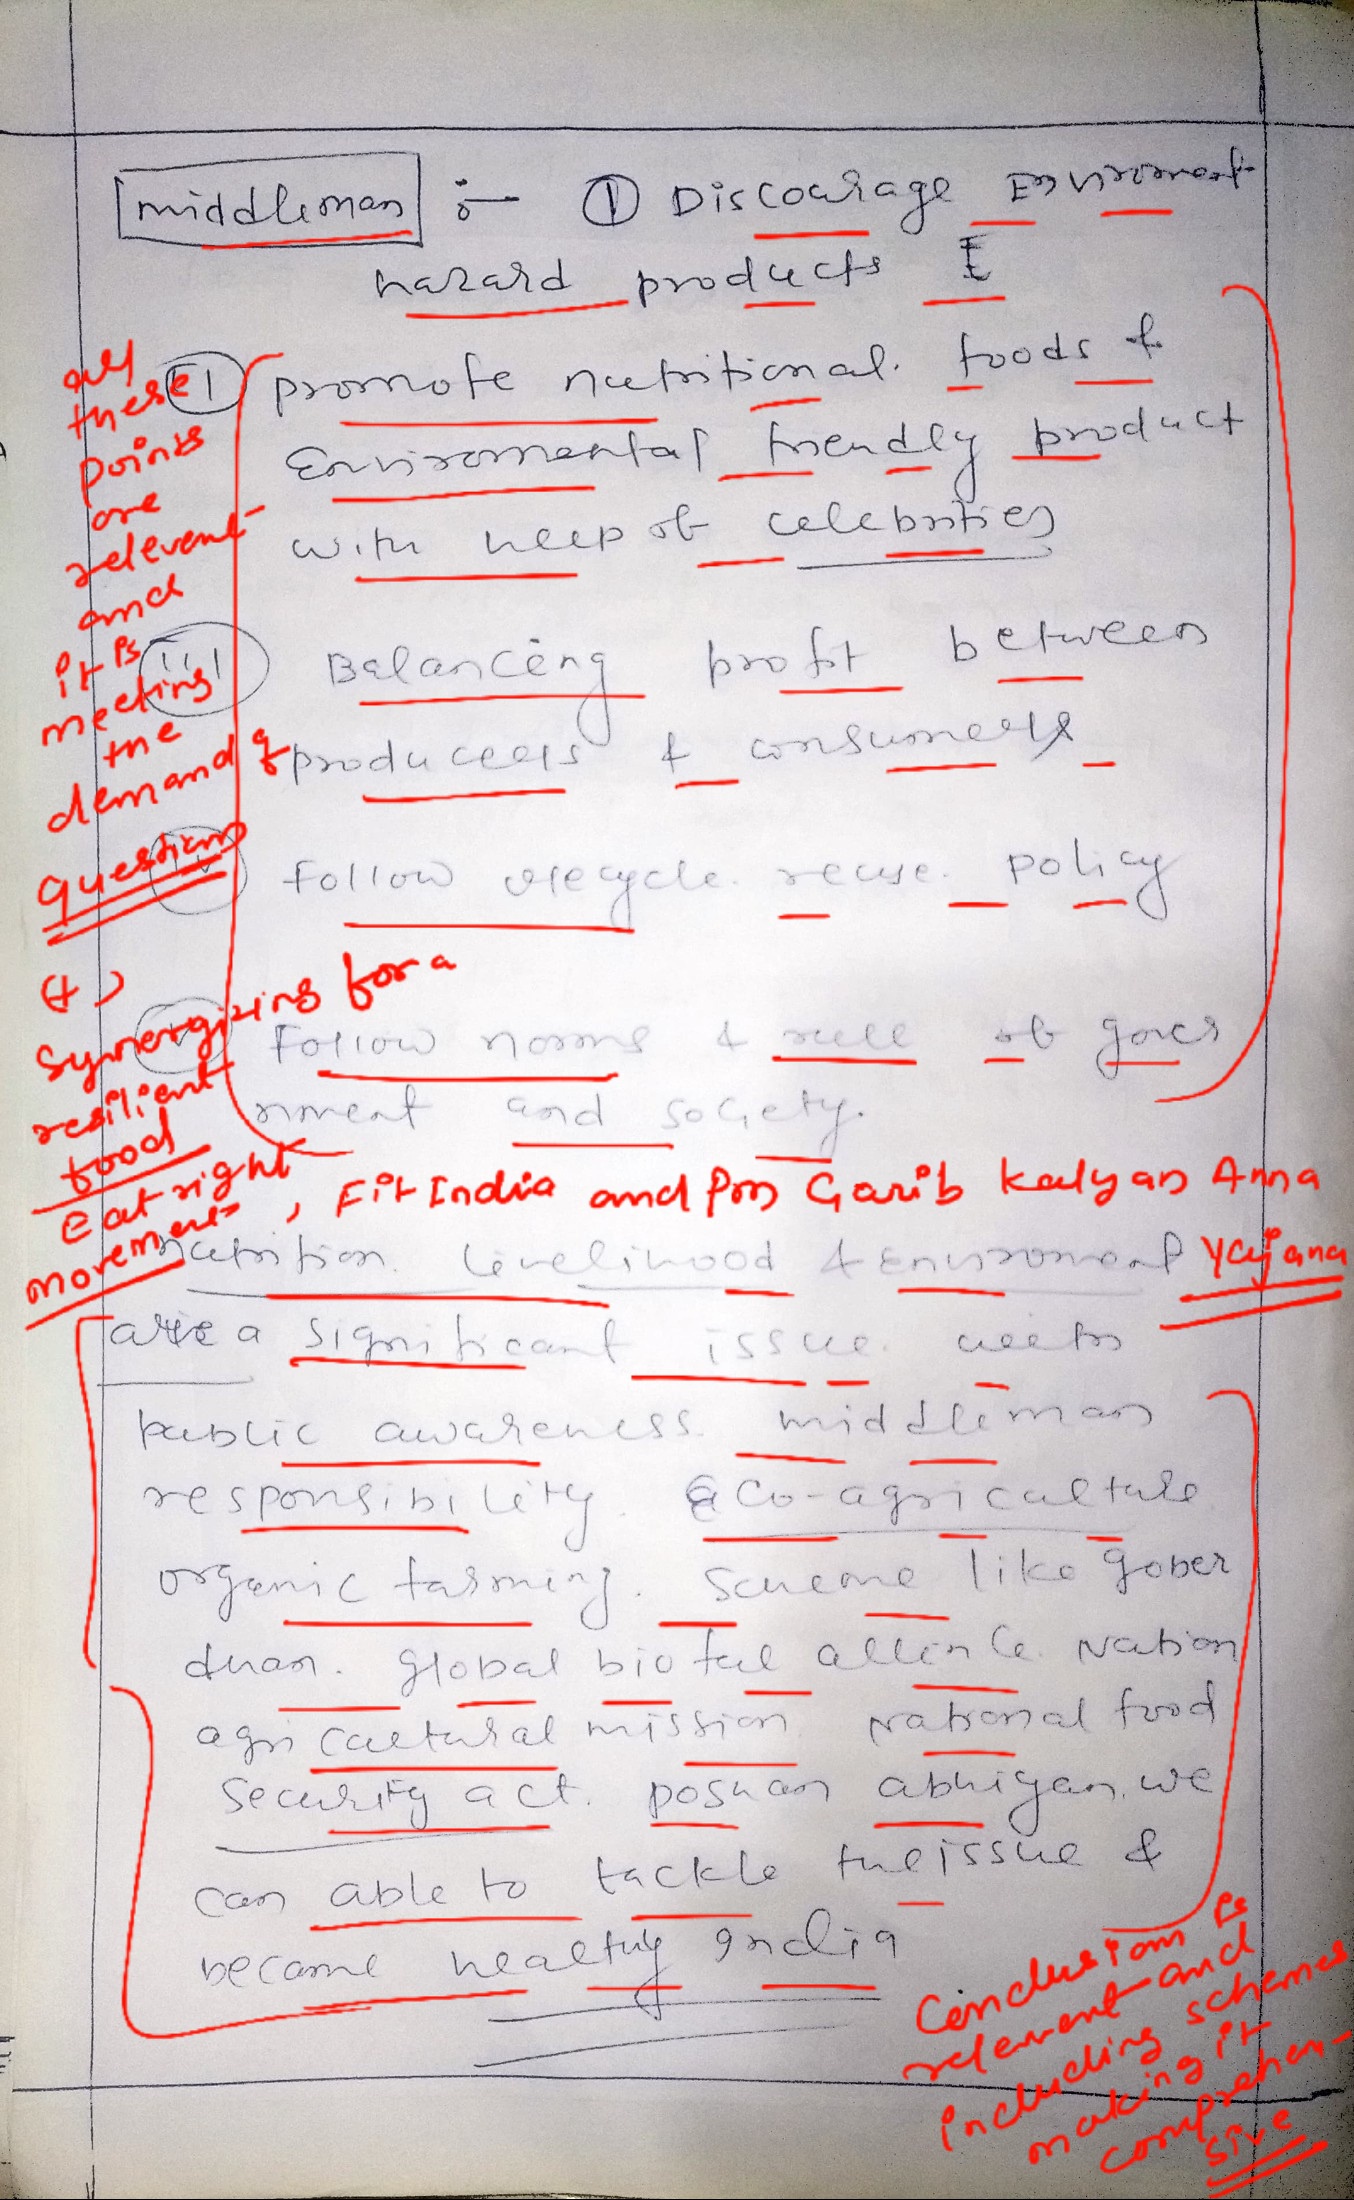 middleman :- ① Discourage Enviroment
hazard products &
ii promote nutritional. foods &
Enviromental friendly product
with help of celebrities
iii Balancing profit between
producers & consumers
Follow recycle. reuse. policy
Follow norms & rule of gover
nment and society.
nutrition. livelihood & Enviroment
are a significant issue. with
public awareness. middleman
responsibility. eco-agriculture
organic farming. scheme like gober
dhan. global bio fuel allince. Nation
agricultural mission. National food
security act. poshan abhiyan. we
can able to tackle the issue &
became healthy India
all
these
points
are
relevent
and
it is
meeting
the
demand of
question
(+)
Synergizing for a
resilient
food
eat right
movement, Fit India and Pm Garib kalyan Anna
Yojana
Conclusion is
relevant and
including schemes
making it
comprehen-
sive